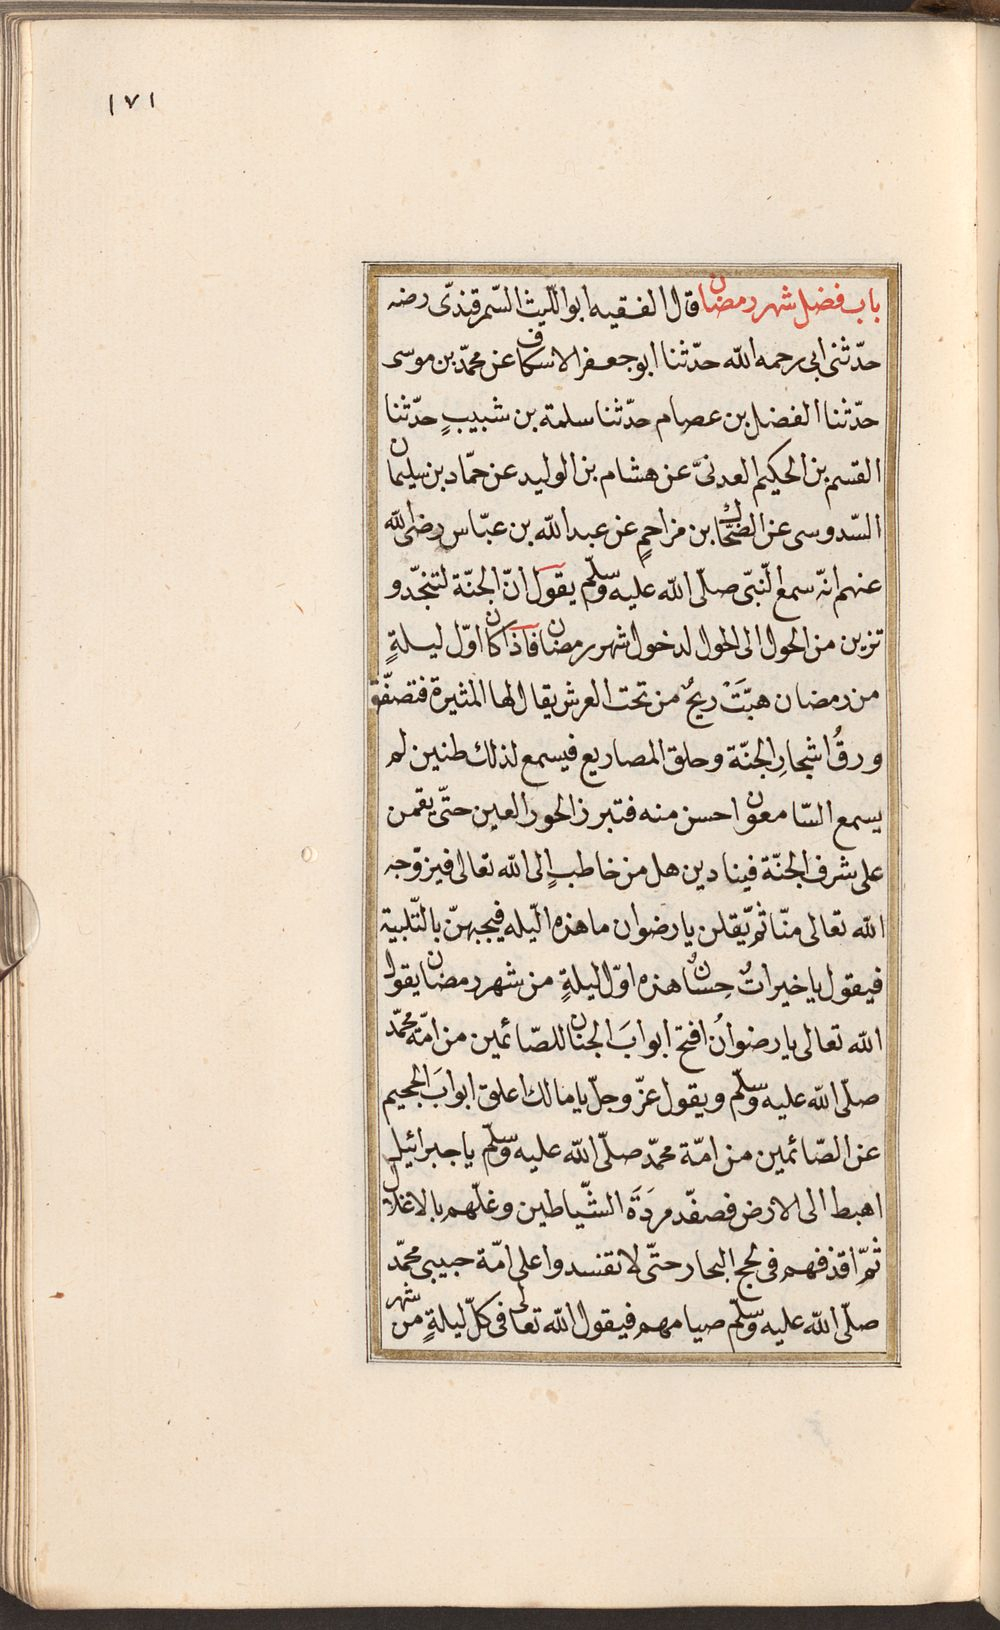 ١٧١
باب فضل شهر رمضان قال الفقيه ابو اللّيث السّمرقندىّ رضه
حدّثنى ابى رحمه الله حدّثنا ابو جعفر الاسكاف عن محمّد بن موسى
حدّثنا الفضل بن عصام حدّثنا سلمة بن شبيبٍ حدّثنا
القسم بن الحكيم العدنىّ عن هشام بن الوليد عن حمّاد بن سليمان
السّدوسى عن الضحّاك بن مزاحمٍ عن عبد الله بن عبّاس رضى الله
عنهم انّه سمع النّبىّ صلّى الله عليه وسلّم يقول انّ الجنّة لتنجّد و
تزين من الحول الى الحول لدخول شهر رمضان فاذا كان اوّل ليلةٍ
من رمضان هبّتْ ريحٌ من تحت العرش يقال لها المثيرة فتصفّق
ورقُ اشجارِ الجنّة وحلق المصاريع فيسمع لذلك طنين لم
يسمع السّامعون احسن منه فتبرز الحور العين حتّى يقمن
على شرف الجنّة فينادين هل من خاطبٍ الى الله تعالى فيزوّجه
الله تعالى منّا ثمّ يقلن يا رضوان ما هذه الّيله فيجبهنّ بالتّلبية
فيقول يا خيراتٌ حِسانٌ هذه اوّل ليلةٍ من شهر رمضان يقول
الله تعالى يا رضوانُ افتح ابوابَ الجنان للصّائمين من امّة محمّد
صلّى الله عليه وسلّم ويقول عزّ وجلّ يا مالك اغلق ابوابَ الجحيم
عن الصّائمين من امّة محمّد صلّى الله عليه وسلّم يا جبرائيل
اهبط الى الارض فصفّد مردَةَ الشّياطين وغلّهم بالاغلال
ثمّ اقذفهم فى لجج البحار حتّى لا تفسدوا على امّة حبيبى محمّد
صلّى الله عليه وسلّم صيامهم فيقول الله تعالى فى كلّ ليلةٍ من شهر